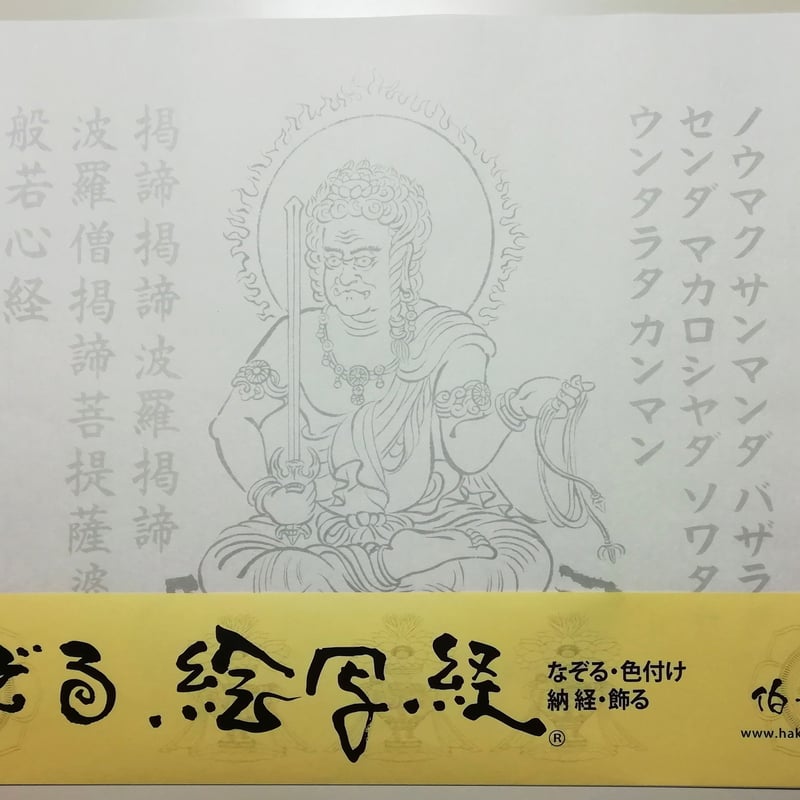 ノウマク サンマンダ バザラ
センダ マカロシヤダ ソワタ
ウンタラタ カンマン
掲諦掲諦波羅掲諦
波羅僧掲諦菩提薩婆
般若心経
ぞる 絵写経®
なぞる・色付け
納経・飾る
伯
www.hak